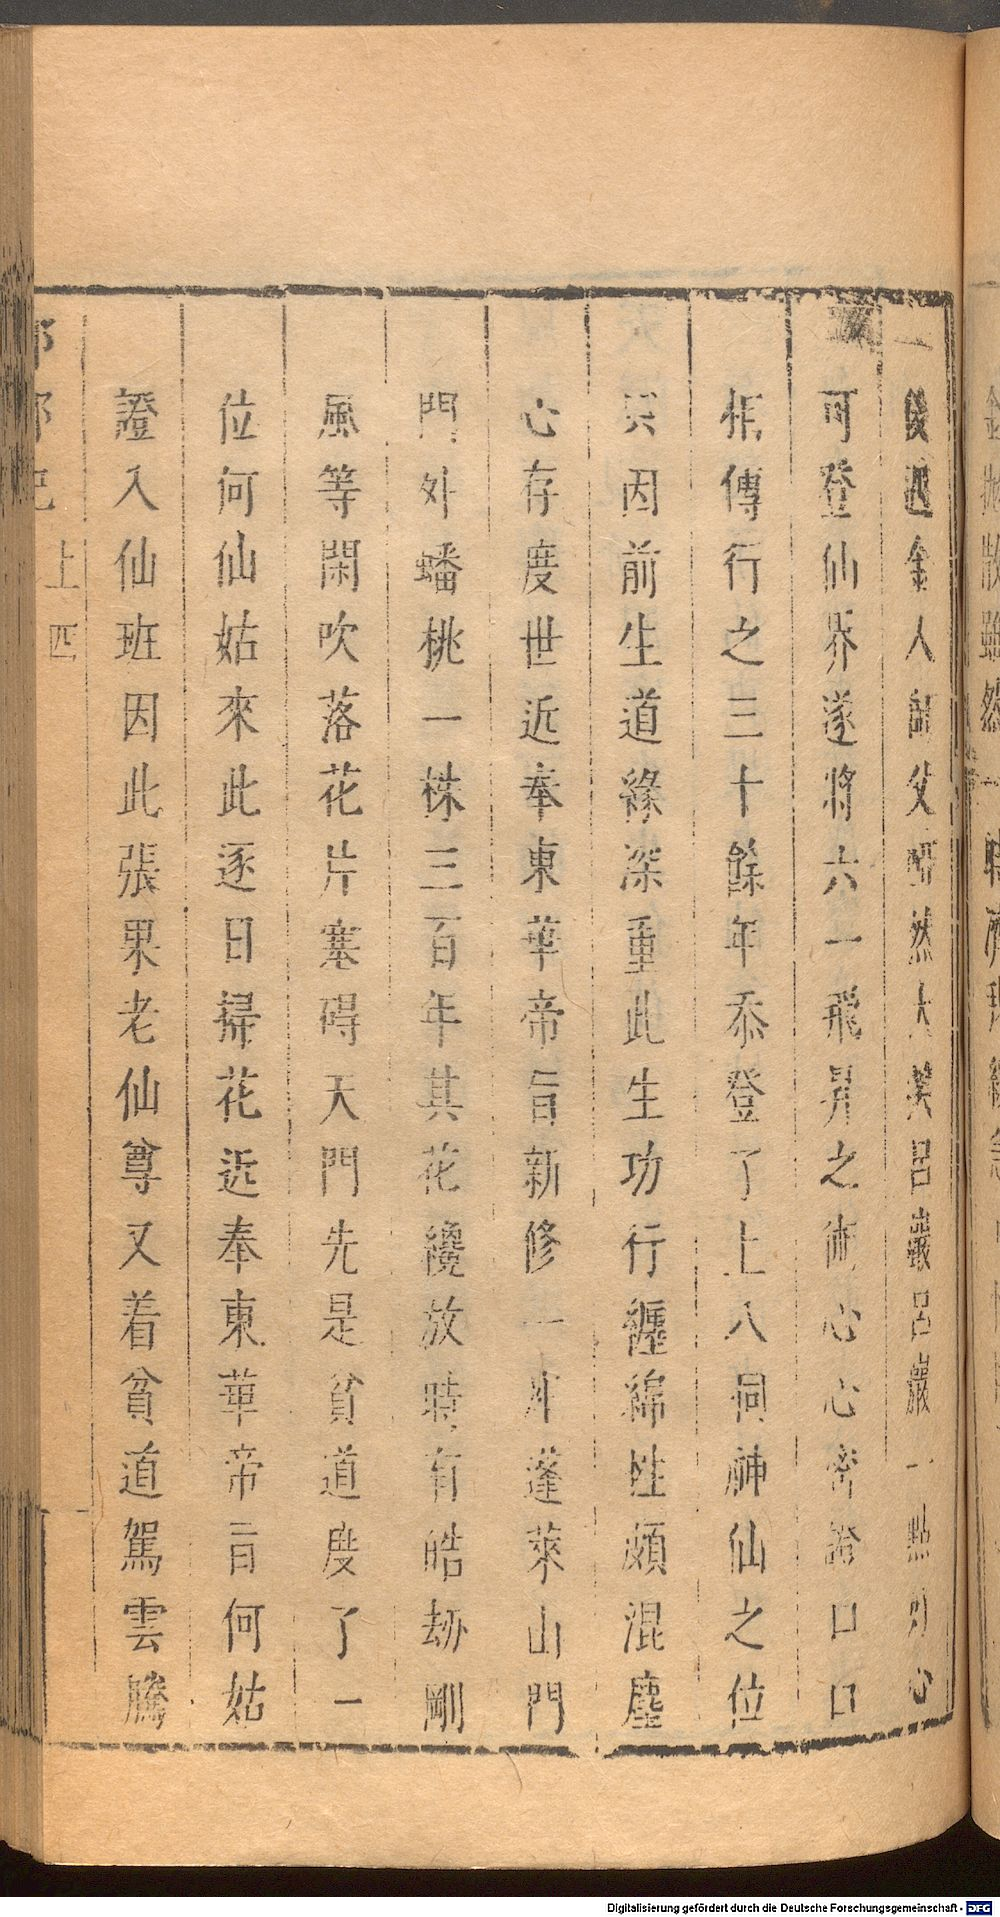 後遇金人師父啞然大笑呂巖呂巖一點月心
可登仙界遂將六一飛昇之術心心密證口口
相傳行之三十餘年忝登了上八洞神仙之位
只因前生道緣深重此生功行纒綿性頗混塵
心存度世近奉東華帝旨新修一座蓬萊山門
門外蟠桃一株三百年其花纔放時有皓劫剛
風等閑吹落花片塞礙天門先是貧道度了一
位何仙姑來此逐日掃花近奉東華帝旨何姑
證入仙班因此張果老仙尊又着貧道駕雲騰
邯鄲
上
四